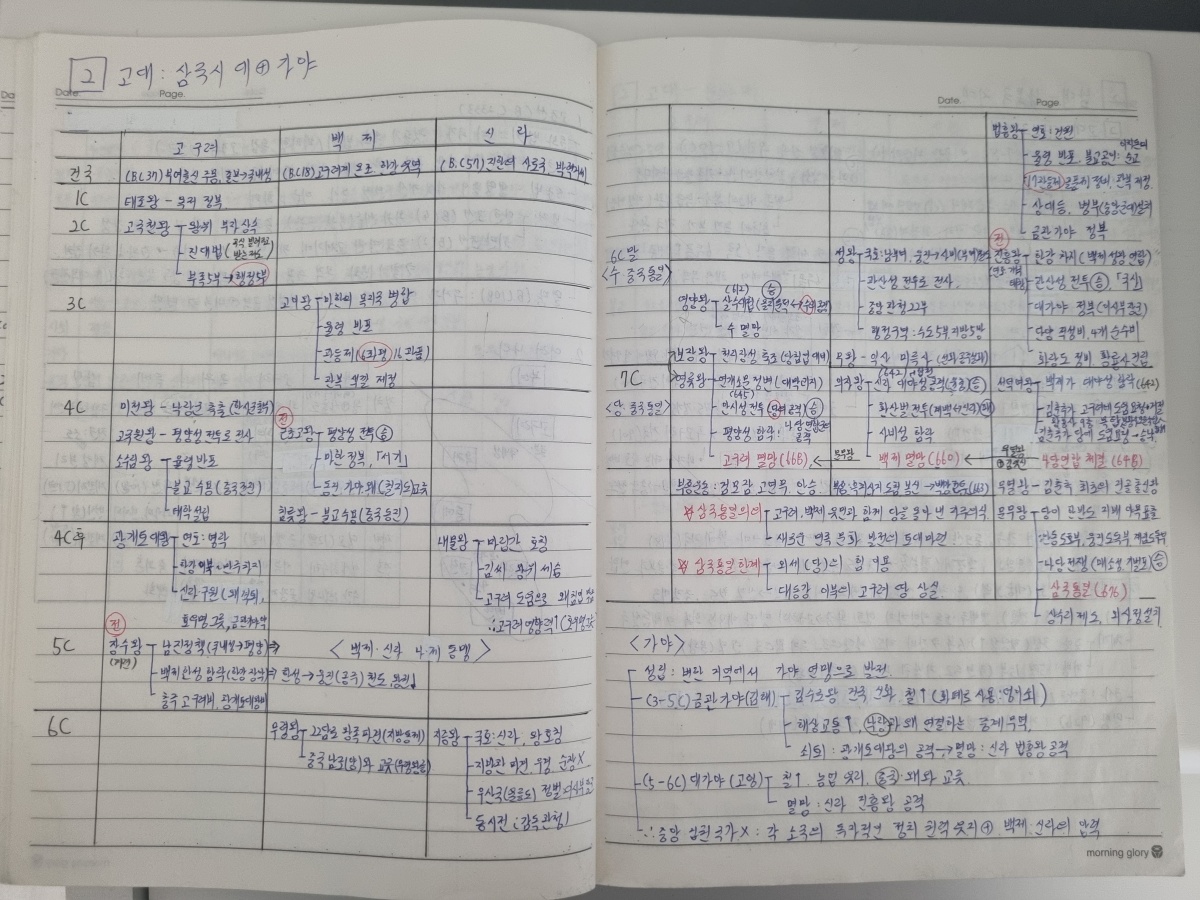 2 고대 : 삼국시대 ⊕ 가야
Date. Page.
고구려 백제 신라
건국 (B.C 37) 부여출신 주몽, 졸본→국내성 (B.C 18) 고구려계 온조, 한강 유역 (B.C 57) 진한의 사로국, 박혁거세
1C 태조왕 - 옥저 정복
2C 고국천왕 - 왕위 부자상속
- 진대법
- 부족5부→행정5부
3C 고이왕 - 마한의 목지국 병합
- 율령 반포
- 관등제 (6좌평 16관품)
- 관복 색깔 제정
4C 미천왕 - 낙랑군 축출
고국원왕 - 평양성 전투로 전사
전
근초고왕 - 평양성 전투 승
소수림왕 - 율령 반포
- 마한 정복, 「서기」
- 불교 수용 (중국 전진)
- 동진 가야 왜 (칠지도) 교류
- 태학 설립
침류왕 - 불교 수용 (중국 동진)
4C후 광개토대왕 - 연호 : 영락
내물왕 - 마립간 호칭
- 김씨 왕위 세습
- 신라 구원 (왜 격퇴,
- 고구려 도움으로 왜
호우명 그릇, 금관가야
∴ 고구려 영향력↑
전
5C 장수왕 - 남진정책 (국내성→평양) ⇒ < 백제·신라 나·제 동맹 >
- 백제 한성 함락 (한강 장악) ⇒ 한성→웅진(공주) 천도, 왕권↓
충주 고구려비, 광개토대왕비
6C 무령왕 - 22담로 왕족 파견 (지방통제)
- 중국 남조(양)와 교류
지증왕 - 국호:신라, 왕 호칭
- 지방관 파견 우경 순장X
- 우산국(울릉도) 정벌
- 동시전 (감독관청)
Date. Page.
법흥왕 - 연호 : 건원
- 율령 반포 불교 공인 :
17관등제 정비, 관복 제정
- 상대등, 병부
- 금관가야 정복
전
6C말
<수 중국통일>
성왕 - 국호:남부여, 웅진→사비
- 관산성 전투로 전사
- 중앙 관청 22부
- 행정구역 : 수도 5부 지방 5방
진흥왕 - 한강 차지 (백제 성왕 연합)
- 관산성 전투 승, 「국사」
- 대가야 정복
- 단양 적성비, 4개 순수비
- 화랑도 정비 황룡사 건립
영양왕 - (612) 승
살수대첩
- 수 멸망
7C
<당 중국통일>
- 천리장성 축조
무왕 - 익산 미륵사
- 연개소문 정변 (대막리지)
(645)
- 안시성 전투 승
- 평양성 함락 :
고구려 멸망 (668)
의자왕 - 신라 대야성
- 황산벌 전투
- 사비성 함락
백제 멸망 (660)
선덕여왕 - 백제가 대야성 함락 (642)
나당연합 체결 (648)
부흥운동 : 검모잠, 고연무, 안승
무열왕 - 김춘추 최초의 진골 출신 왕
☆삼국통일의의 - 고구려, 백제 유민과 함께 당을 몰아낸 자주의식
- 새로운 민족 문화 발전의 토대 마련
☆삼국통일한계 - 외세 (당)의 힘 이용
- 대동강 이북의 고구려 땅 상실
문무왕 - 당이 한반도 지배 야욕 표출
안동도호부, 웅진도독부 계림도독부
- 나당전쟁 (매소성 기벌포) 승
- 삼국통일 (676)
- 상수리 제도, 외사정 설치
< 가야 >
- 성립 : 변한 지역에서 가야 연맹으로 발전
- (3-5C) 금관가야 (김해) - 김수로왕 건국 신화 철↑ (화폐로 사용 : 덩이쇠)
- 해상교통↑ 낭랑과 왜 연결하는 중계 무역
쇠퇴 : 광개토대왕의 공격 → 멸망 : 신라 법흥왕 공격
- (5-6C) 대가야 (고령) - 철↑, 농업 유리, 중국·왜와 교류
- 멸망 : 신라 진흥왕 공격
∴ 중앙 집권 국가 X : 각 소국의 독자적인 정치 권력 유지 ⊕ 백제·신라의 압력
morning glory